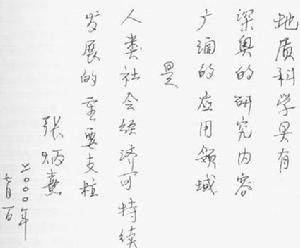 地质科学具有
深奥的研究内容
广阔的应用领域
是
人类社会经济可持续
发展的重要支柱
张炳熹
二〇〇〇年
七月一日